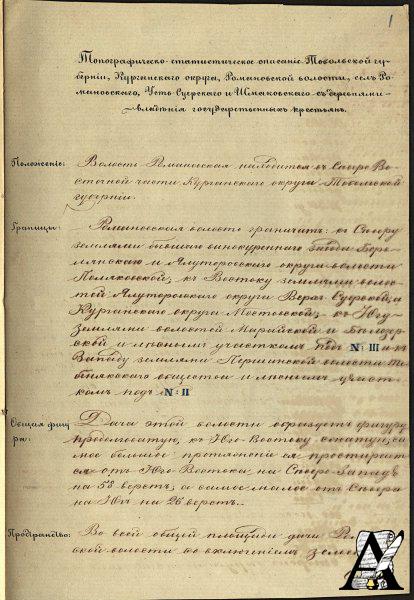 1
Топографическо-статистическое описаніе Тобольской гу-
берніи, Курганскаго округа, Романовской волости, селъ Ро-
мановскаго, Усть Суерскаго и Шмаковскаго съ деревнями
владѣнія государственныхъ крестьянъ.
Положеніе:
Волость Романовская находится въ Сѣверо Во-
сточной части Курганскаго округа Тобольской
губерніи.
Границы:
Романовская волость граничитъ: къ Сѣверу
землями бывшаго винокуреннаго завода
и Ялуторовскаго округа волости
къ Востоку землями волос-
тей Ялуторовскаго округа Верхъ Суерской, и
Курганскаго округа Мостовской; къ Югу
землями волостей Марайской и Бѣлозер-
ской и леснымъ участкомъ подъ № III и къ
Западу землями волости
общества и леснымъ участ-
комъ подъ № II
Общая фигу-
ра:
Дача этой волости образуетъ фигуру
продолговатую, къ Юго-Востоку
мое большое протяженіе ея простирает-
ся отъ Юго-Востока на Сѣверо-Западъ
на 58 верстъ, а самое малое отъ Сѣвера
на Югъ на 26 верстъ.
Пространство:
Во всей общей площади дачи
ской волости со включеніемъ
А